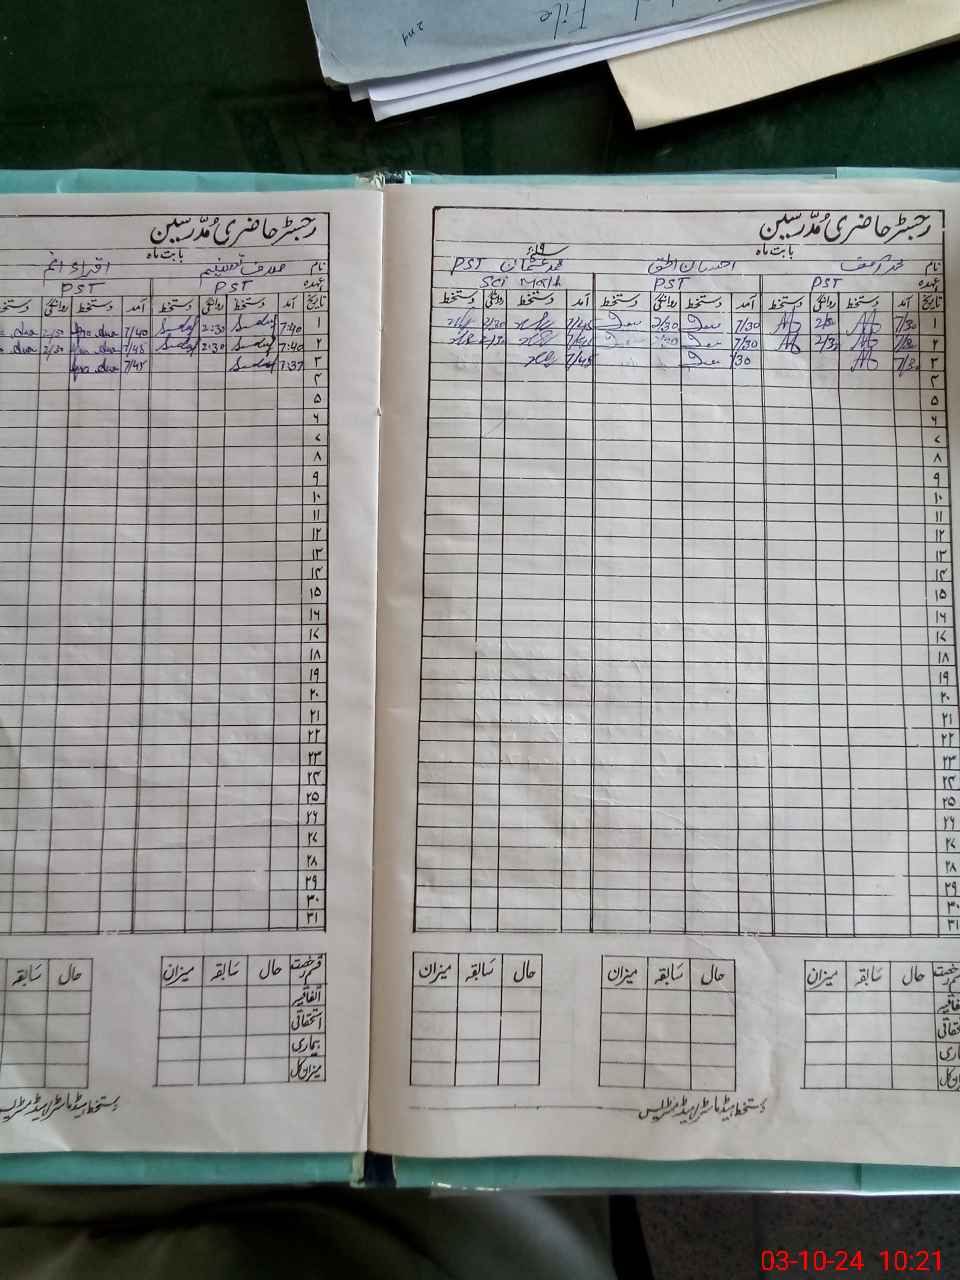 File
2nd
رجسٹر حاضری مُدرّسین
بابت ماہ
نام محمد آصف احسان الحق محمد عثمان PST
عہدہ PST PST Sci Math
تاریخ آمد دستخط روانگی دستخط آمد دستخط روانگی دستخط آمد دستخط روانگی دستخط
۱ 7/30 2/30 7/30 2/30 7/45 2/30
۲ 7/30 2/30 7/30 7/45 2/30
۳ 7/30 7/30 7/45
۴
۵
۶
۷
۸
۹
۱۰
۱۱
۱۲
۱۳
۱۴
۱۵
۱۶
۱۷
۱۸
۱۹
۲۰
۲۱
۲۲
۲۳
۲۴
۲۵
۲۶
۲۷
۲۸
۲۹
۳۰
۳۱
حال سابقہ میزان حال سابقہ میزان حال سابقہ میزان
دستخط ہیڈ ماسٹر/ہیڈ مسٹریس
رجسٹر حاضری مُدرّسین
بابت ماہ
نام صدف تسنیم اقراء انجم
عہدہ PST PST
تاریخ آمد دستخط روانگی دستخط آمد دستخط روانگی دستخط
۱ 7:40 2:30 7/40 2/30
۲ 7:40 2:30 7/45 2/30
۳ 7:37 7/45
۴
۵
۶
۷
۸
۹
۱۰
۱۱
۱۲
۱۳
۱۴
۱۵
۱۶
۱۷
۱۸
۱۹
۲۰
۲۱
۲۲
۲۳
۲۴
۲۵
۲۶
۲۷
۲۸
۲۹
۳۰
۳۱
قسم رخصت حال سابقہ میزان حال سابقہ
اتفاقیہ
استحقاقی
بیماری
میزان کل
دستخط ہیڈ ماسٹر/ہیڈ مسٹریس
03-10-24 10:21